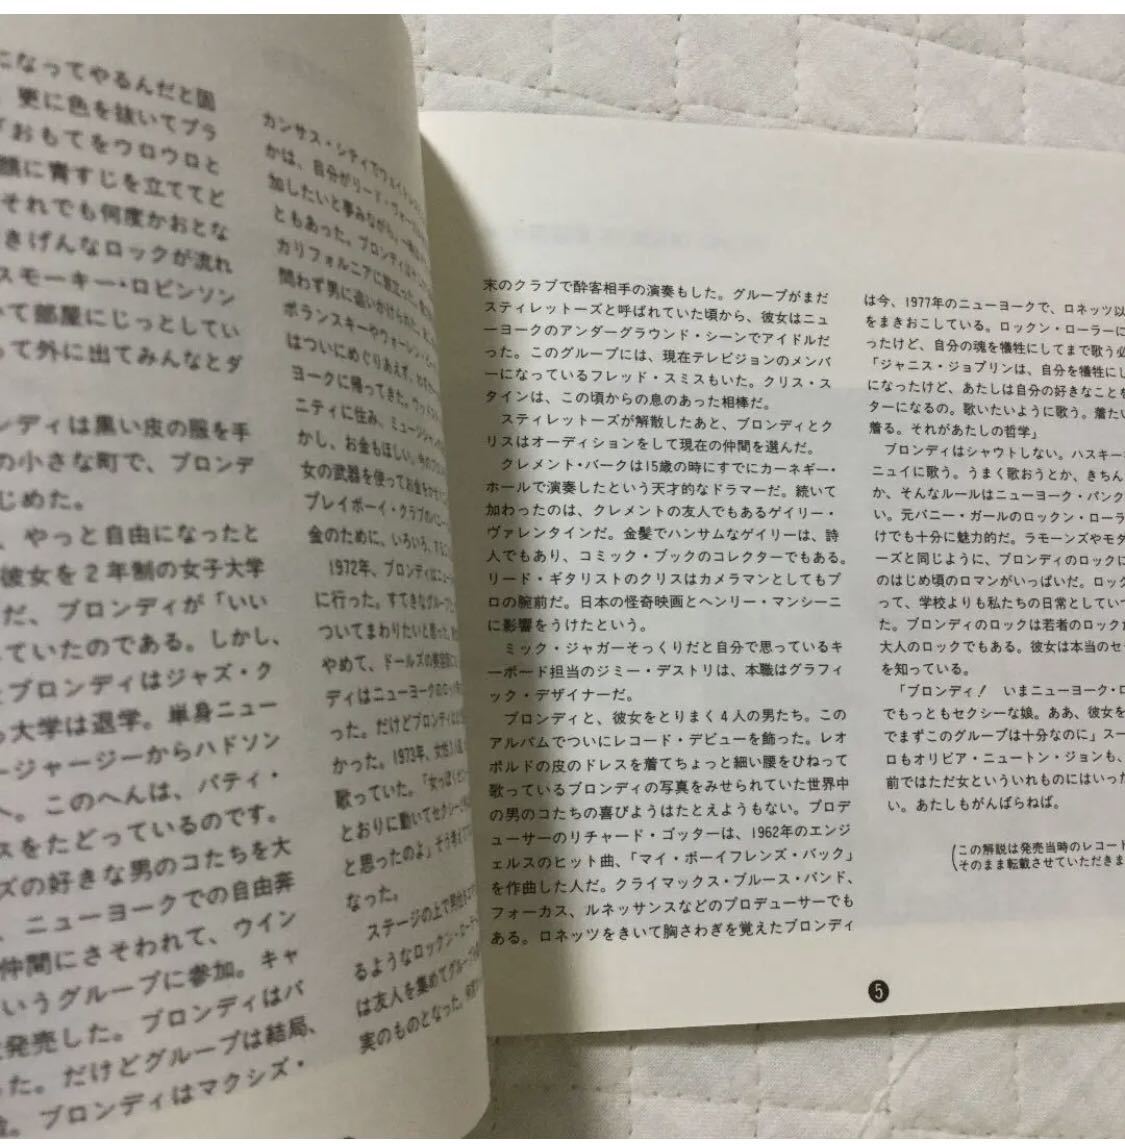 になってやるんだと固
更に色を抜いてプラ
「おもてをウロウロと
顔に青すじを立ててど
それでも何度かおとな
きげんなロックが流れ
スモーキー・ロビンソン
いて部屋にじっとしてい
って外に出てみんなとダ
ンディは黒い皮の服を手
の小さな町で、ブロンデ
じめた。
、やっと自由になったと
彼女を2年制の女子大学
だ、ブロンディが「いい
していたのである。しかし、
ブロンディはジャズ・ク
大学は退学。単身ニュー
ージャージーからハドソン
へ。このへんは、パティ・
スをたどっているのです。
ズの好きな男のコたちを大
、ニューヨークでの自由奔
仲間にさそわれて、ウイン
いうグループに参加。キャ
発売した。ブロンディはバ
った。だけどグループは結局、
。ブロンディはマクシズ・
カンサス・シティでウェイトレス
かは、自分がリード・ヴォー
加したいと夢みながら、
ともあった。ブロンディは
カリフォルニアに旅立った。
問わず男に追いかけられた。
ポランスキーやウォーレン・
はついにめぐりあえず、
ヨークに帰ってきた。
ニティに住み、ミュージシャン
かし、お金もほしい。
女の武器を使ってお金を
プレイボーイ・クラブのバニー
金のために、いろいろ、
1972年、ブロンディは
に行った。すてきなグループ
ついてまわりたいと思った。
やめて、ドールズの
ディはニューヨークの
った。だけどブロンディは
かった。1973年、女性3人
歌っていた。
とおりに動いてセクシー
と思ったのよ」
なった。
ステージの上で
るようなロックン・ローラー
は友人を集めてグループ
実のものとなった。
末のクラブで酔客相手の演奏もした。グループがまだ
スティレットーズと呼ばれていた頃から、彼女はニュ
ーヨークのアンダーグラウンド・シーンでアイドルだ
った。このグループには、現在テレビジョンのメンバ
ーになっているフレッド・スミスもいた。クリス・ス
タインは、この頃からの息のあった相棒だ。
スティレットーズが解散したあと、ブロンディとク
リスはオーディションをして現在の仲間を選んだ。
クレメント・バークは15歳の時にすでにカーネギー・
ホールで演奏したという天才的なドラマーだ。続いて
加わったのは、クレメントの友人でもあるゲイリー・
ヴァレンタインだ。金髪でハンサムなゲイリーは、詩
人でもあり、コミック・ブックのコレクターでもある。
リード・ギタリストのクリスはカメラマンとしてもプ
ロの腕前だ。日本の怪奇映画とヘンリー・マンシーニ
に影響をうけたという。
ミック・ジャガーそっくりだと自分で思っているキ
ーボード担当のジミー・デストリは、本職はグラフィ
ック・デザイナーだ。
ブロンディと、彼女をとりまく4人の男たち。この
アルバムでついにレコード・デビューを飾った。レオ
ポルドの皮のドレスを着てちょっと細い腰をひねって
歌っているブロンディの写真をみせられていた世界中
の男のコたちの喜びようはたとえようもない。プロデ
ューサーのリチャード・ゴッターは、1962年のエンジ
ェルスのヒット曲、「マイ・ボーイフレンズ・バック」
を作曲した人だ。クライマックス・ブルース・バンド、
フォーカス、ルネッサンスなどのプロデューサーでも
ある。ロネッツをきいて胸さわぎを覚えたブロンディ
は今、1977年のニューヨークで、ロネッツ以
をまきおこしている。ロックン・ローラーに
ったけど、自分の魂を犠牲にしてまで歌う必
「ジャニス・ジョプリンは、自分を犠牲にし
になったけど、あたしは自分の好きなことを
ターになるの。歌いたいように歌う。着たい
着る。それがあたしの哲学」
ブロンディはシャウトしない。ハスキーな
ニュイに歌う。うまく歌おうとか、きちん
か、そんなルールはニューヨーク・パンク
い。元バニー・ガールのロックン・ローラ
けでも十分に魅力的だ。ラモーンズやモダ
ーズと同じように、ブロンディのロックに
のはじめ頃のロマンがいっぱいだ。ロック
って、学校よりも私たちの日常としていて
た。ブロンディのロックは若者のロックだ
大人のロックでもある。彼女は本当のセク
を知っている。
「ブロンディ! いまニューヨーク・ロ
でもっともセクシーな娘。ああ、彼女を
でまずこのグループは十分なのに」スー
ロもオリビア・ニュートン・ジョンも、
前ではただ女といういれものにはいった
い。あたしもがんばらねば。
(この解説は発売当時のレコード
そのまま転載させていただきま
5